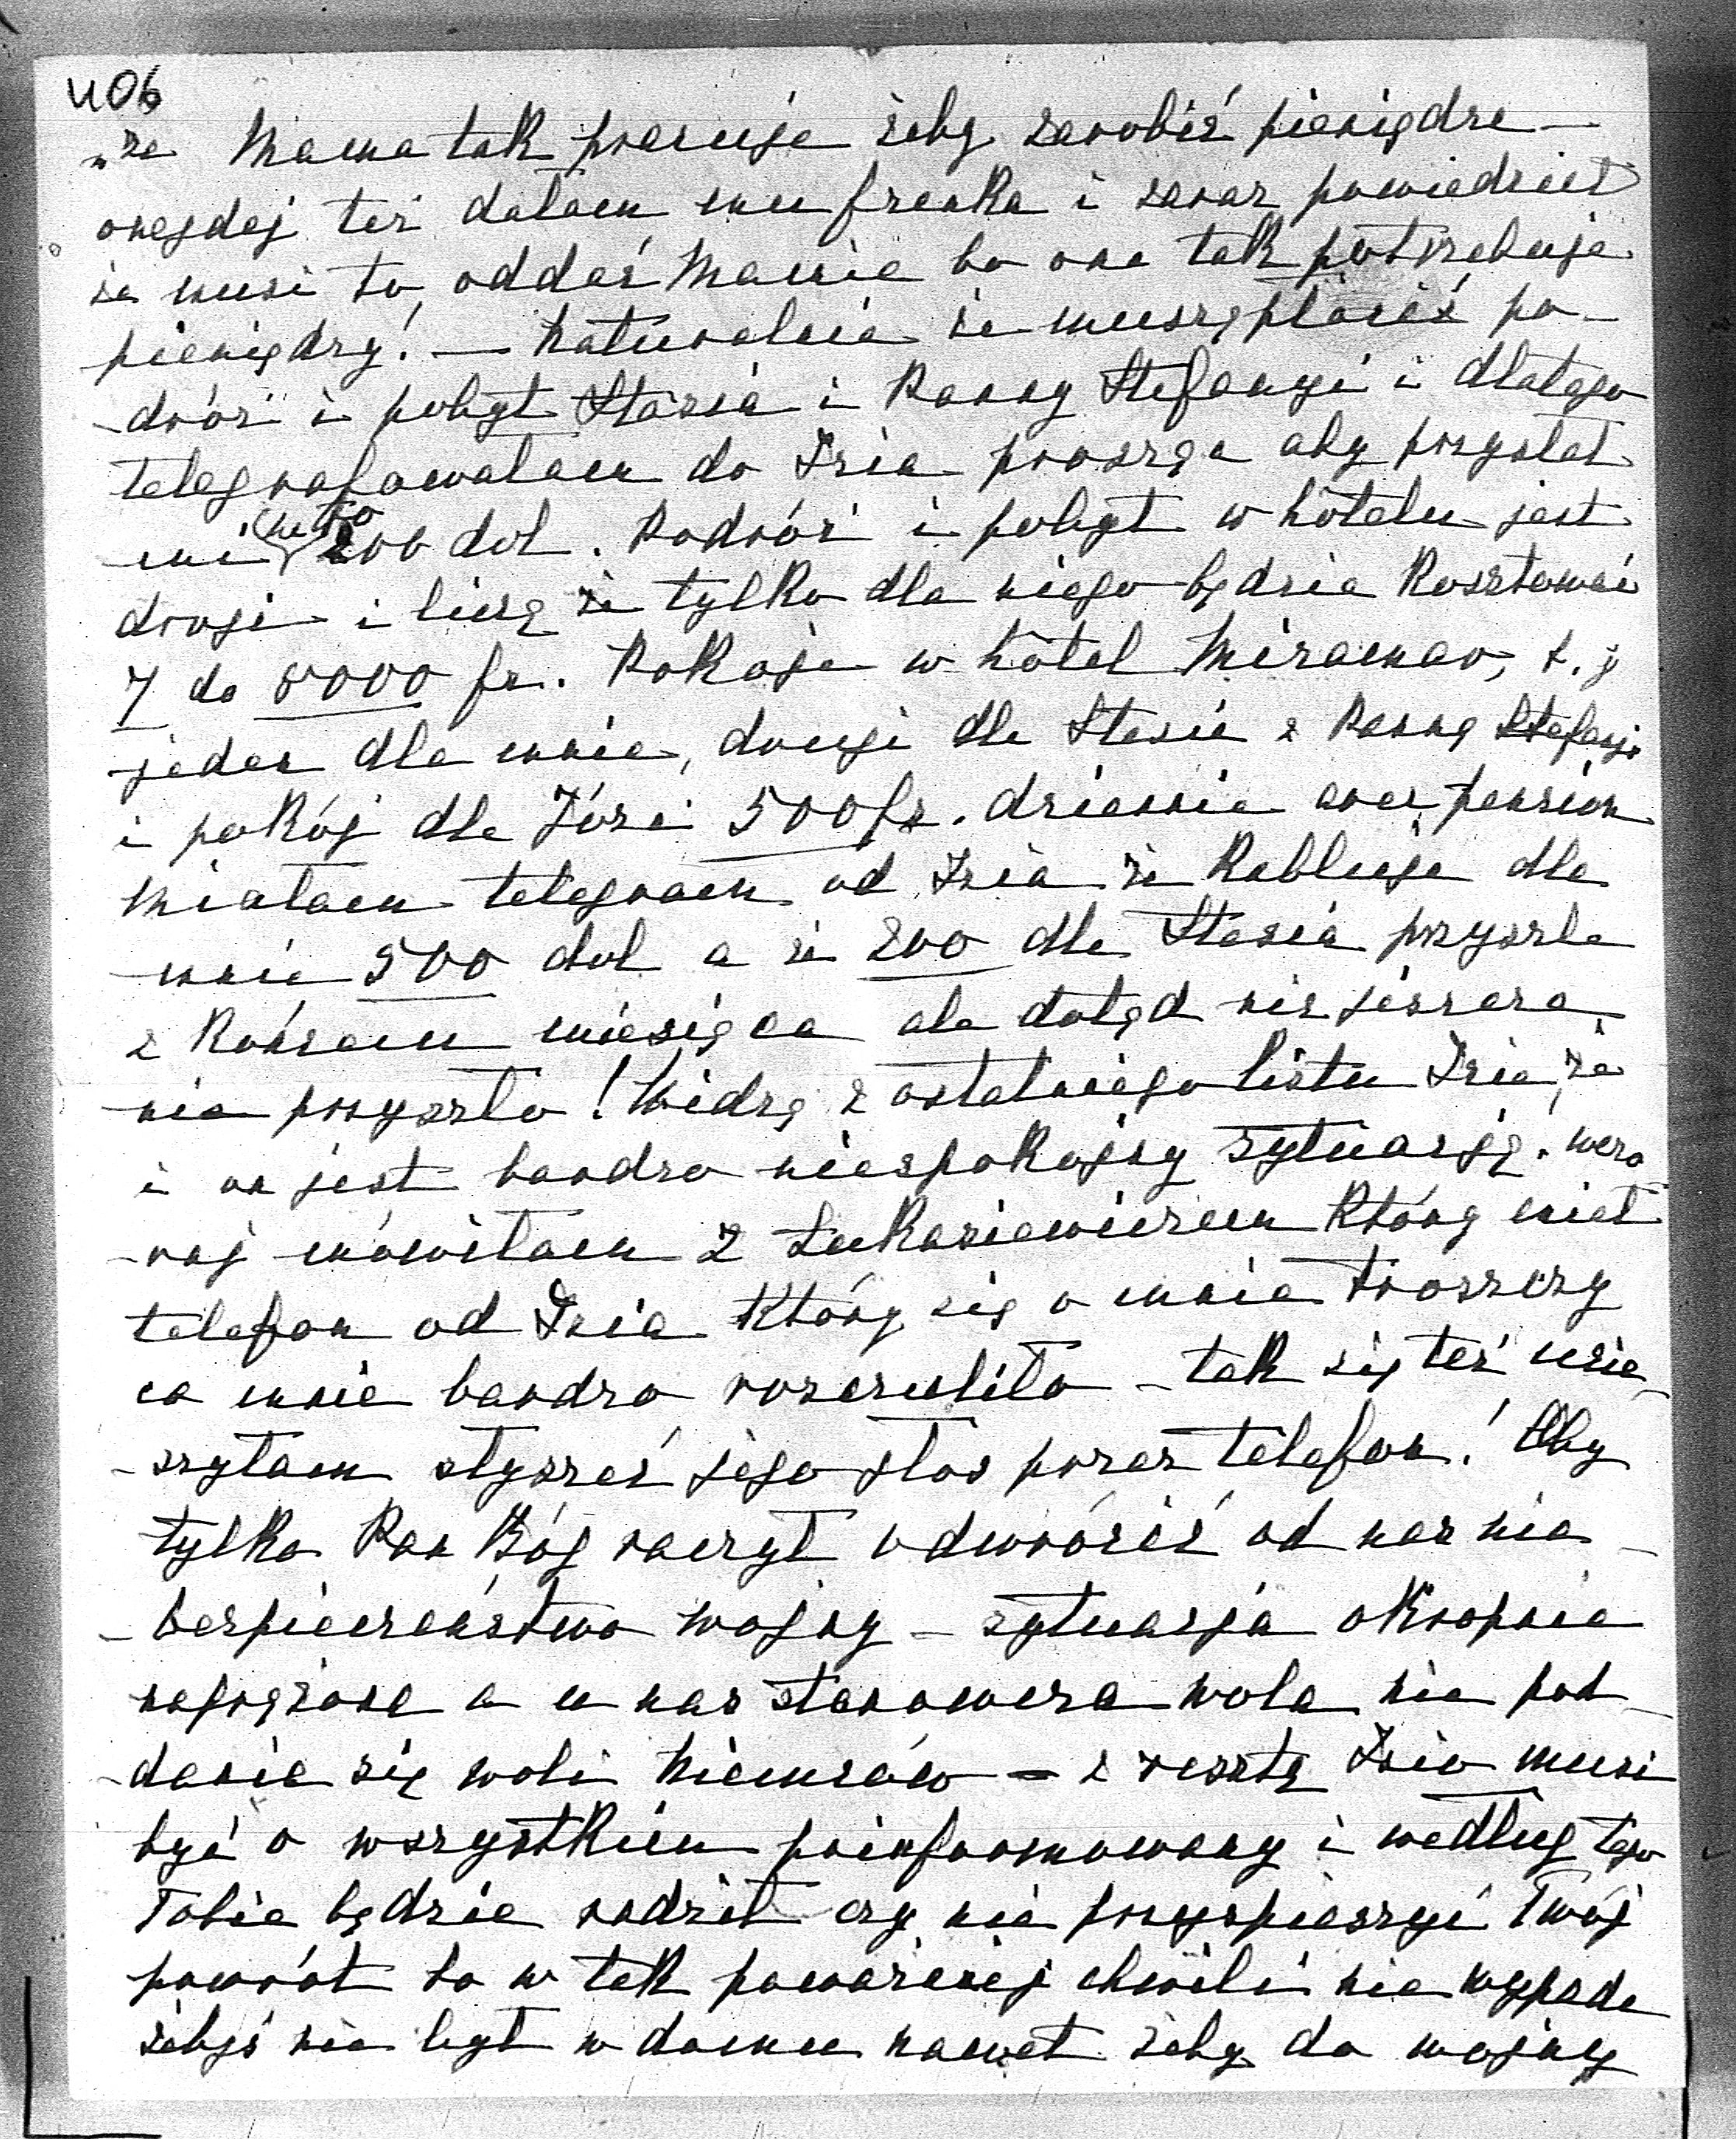 406
„że Mama tak pracuje żeby zarobić pieniądze —
onegdaj też dałam mu franka i zaraz powiedział
że musi to oddać Mamie bo ona tak potrzebuje
pieniędzy! — Naturalnie że muszę płacić po-
-dróż i pobyt Stasia i Panny Stefanji i dlatego
telegrafowałam do Izia prosząc aby przysłał
mi 200 dol. Podróż i pobyt w hôtelu jest
drogi i liczę że tylko dla niego będzie kosztować
7 do 8000 fr. Pokoje w hôtel Miramar, t. j
jeden dla mnie, drugi dla Stasia z Panną Stefanją
i pokój dla Józi 500 fr. dziennie avec pension
Miałam telegram od Izia że kabluje dla
mnie 500 dol a że 200 dla Stasia przyszle
z końcem miesiąca ale dotąd nic jeszcze
nie przyszło! Widzę z ostatniego listu Izia, że
i on jest bardzo niespokojny sytuacją. wczo
-raj mówiłam z Łukasiewiczem który miał
telefon od Izia który się o mnie troszczy
co mnie bardzo rozczuliło – tak się też ucie-
-szyłam słyszeć jego głos przez telefon! Oby
tylko Pan Bóg raczył odwrócić od nas nie-
-bezpieczeństwo wojny – sytuacja okropnie
naprężona a u nas stanowcza wola nie pod-
-danie się woli Niemców – z resztą Izio musi
być o wszystkiem poinformowany i według tego
Tobie będzie radził czy nie przyspieszyć Twój
powrót bo w tak poważnej chwili nie wypada
żebyś nie był w domu nawet żeby do wojny